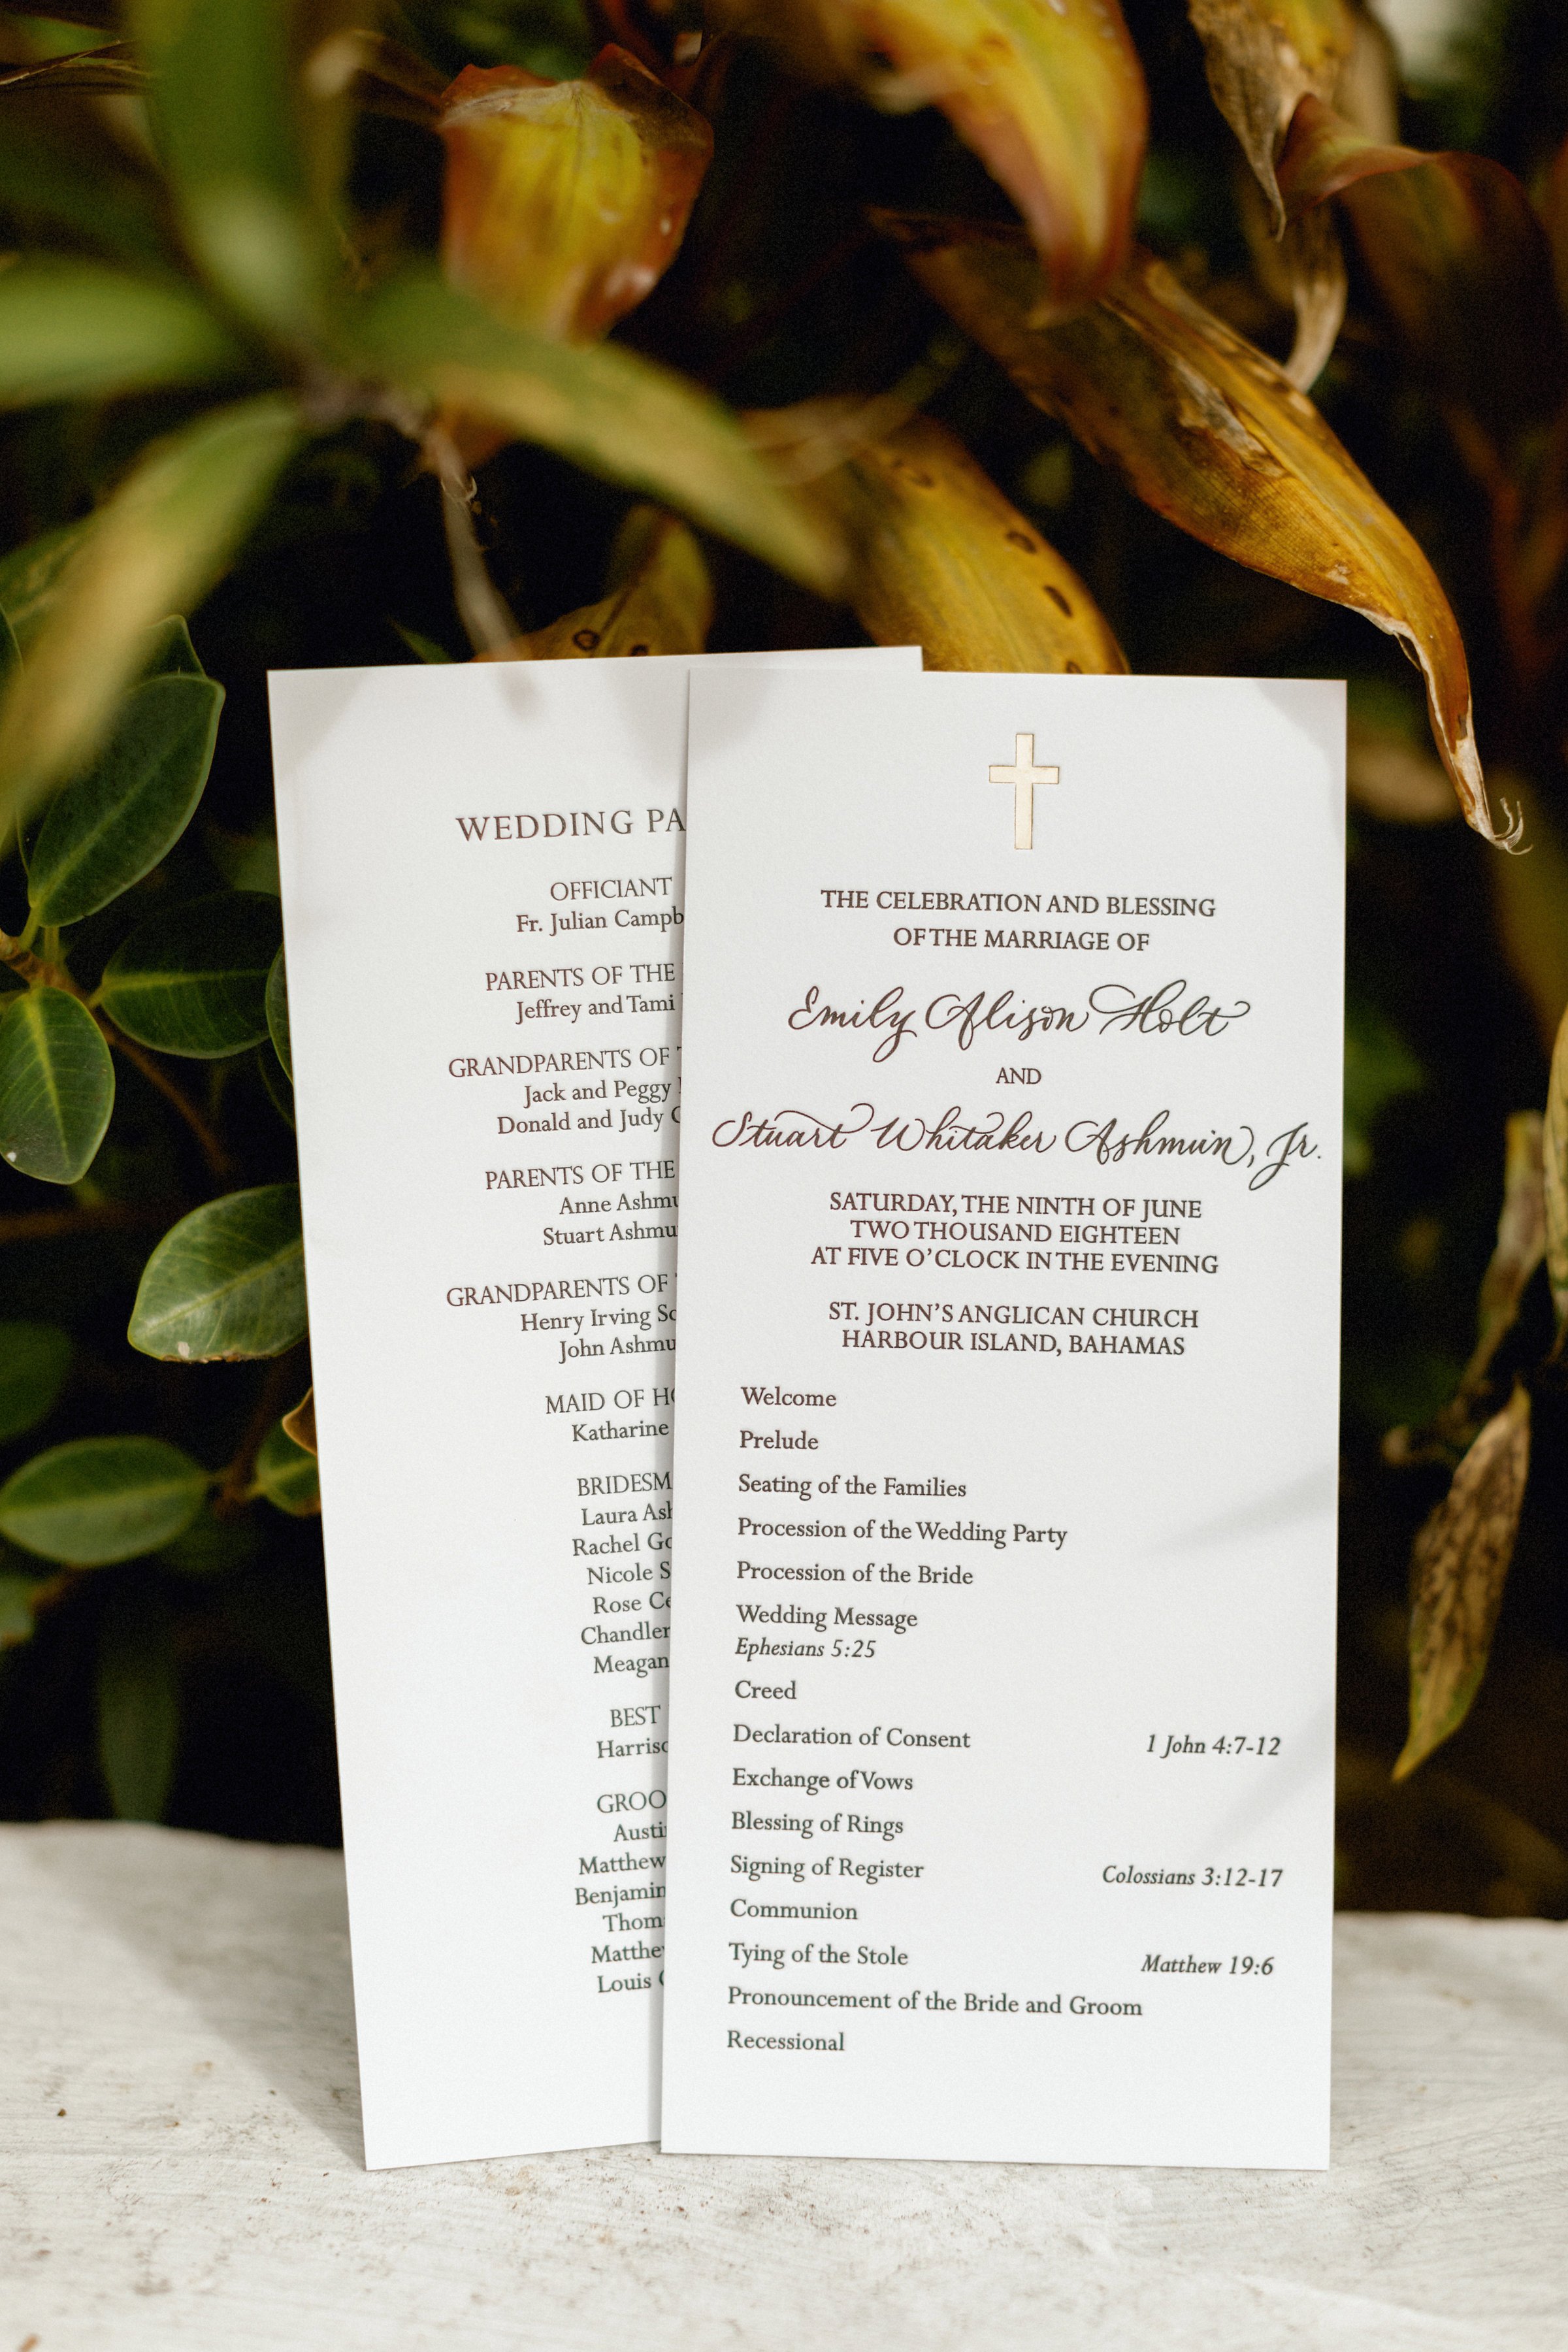 WEDDING
OFFICIANT
Fr. Julian
PARENTS OF THE
Jeffrey and Tami
GRANDPARENTS OF
Jack and Peggy
Donald and Judy
PARENTS OF THE
Anne
Stuart
GRANDPARENTS OF
Henry Irving
John
MAID OF
Katharine
Laura
Rachel
Nicole
Rose
Chandler
Meagan
BEST
Matthew
Louis
THE CELEBRATION AND BLESSING
OF THE MARRIAGE OF
Emily Alison Holt
AND
Stuart Whitaker Ashmun, Jr.
SATURDAY, THE NINTH OF JUNE
TWO THOUSAND EIGHTEEN
AT FIVE O'CLOCK IN THE EVENING
ST. JOHN'S ANGLICAN CHURCH
HARBOUR ISLAND, BAHAMAS
Welcome
Prelude
Seating of the Families
Procession of the Wedding Party
Procession of the Bride
Wedding Message
Ephesians 5:25
Creed
Declaration of Consent 1 John 4:7-12
Exchange of Vows
Blessing of Rings
Signing of Register Colossians 3:12-17
Communion
Tying of the Stole Matthew 19:6
Pronouncement of the Bride and Groom
Recessional